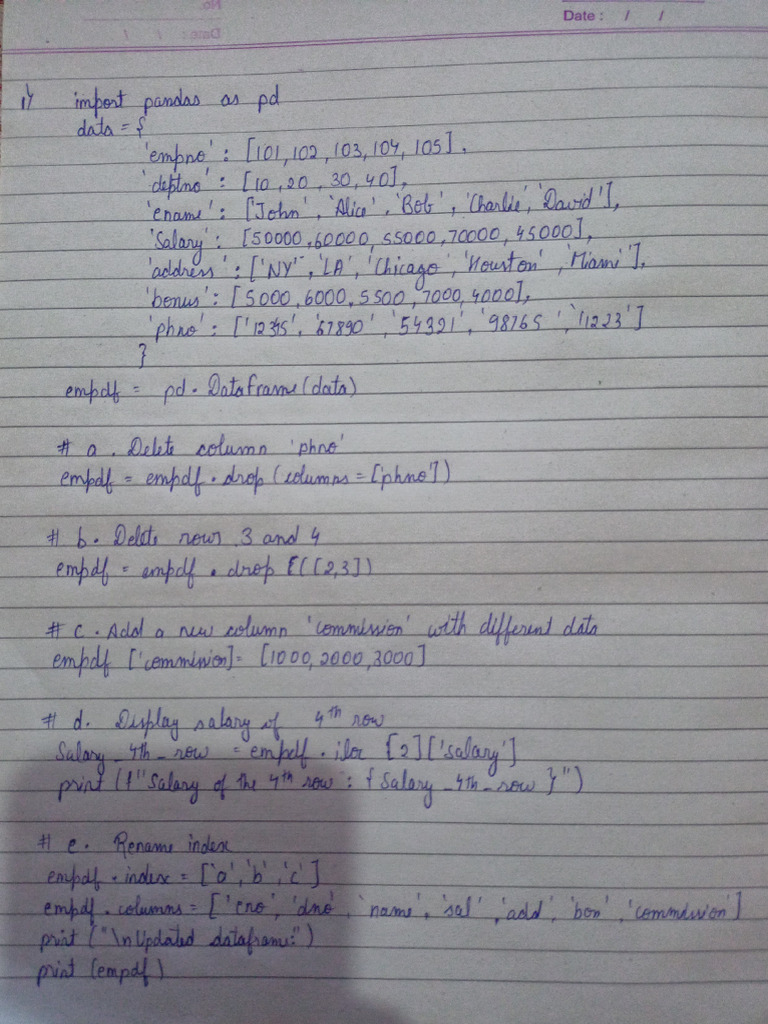 No
Date :
Date : / /
1) import pandas as pd
data = {
'empno' : [101, 102, 103, 104, 105].
'deptno' : [10, 20, 30, 40],
'ename' : ['John', 'Alice', 'Bob', 'Charlie', 'David'],
'Salary' : [50000, 60000, 55000, 70000, 45000],
'address' : ['NY', 'LA', 'Chicago', 'Houston', 'Miami'],
'bonus' : [5000, 6000, 5500, 7000, 4000],
'phno' : ['12345', '67890', '54321', '98765', '11223']
}
empdf = pd.DataFrame(data)
# a. Delete column 'phno'
empdf = empdf.drop (columns = ['phno'])
# b. Delete rows 3 and 4
empdf = empdf.drop [(([2,3])
# c. Add a new column 'commission' with different data
empdf ['commission] = [1000, 2000, 3000]
# d. Display salary of 4th row
Salary_4th_row = empdf.iloc [2]['salary']
print (f"Salary of the 4th row : {Salary_4th_row}")
# e. Rename index
empdf.index = ['a', 'b', 'c']
empdf.columns = ['eno', 'dno', 'name', 'sal', 'add', 'bon', 'commission']
print ("\nUpdated dataframe:")
print (empdf)